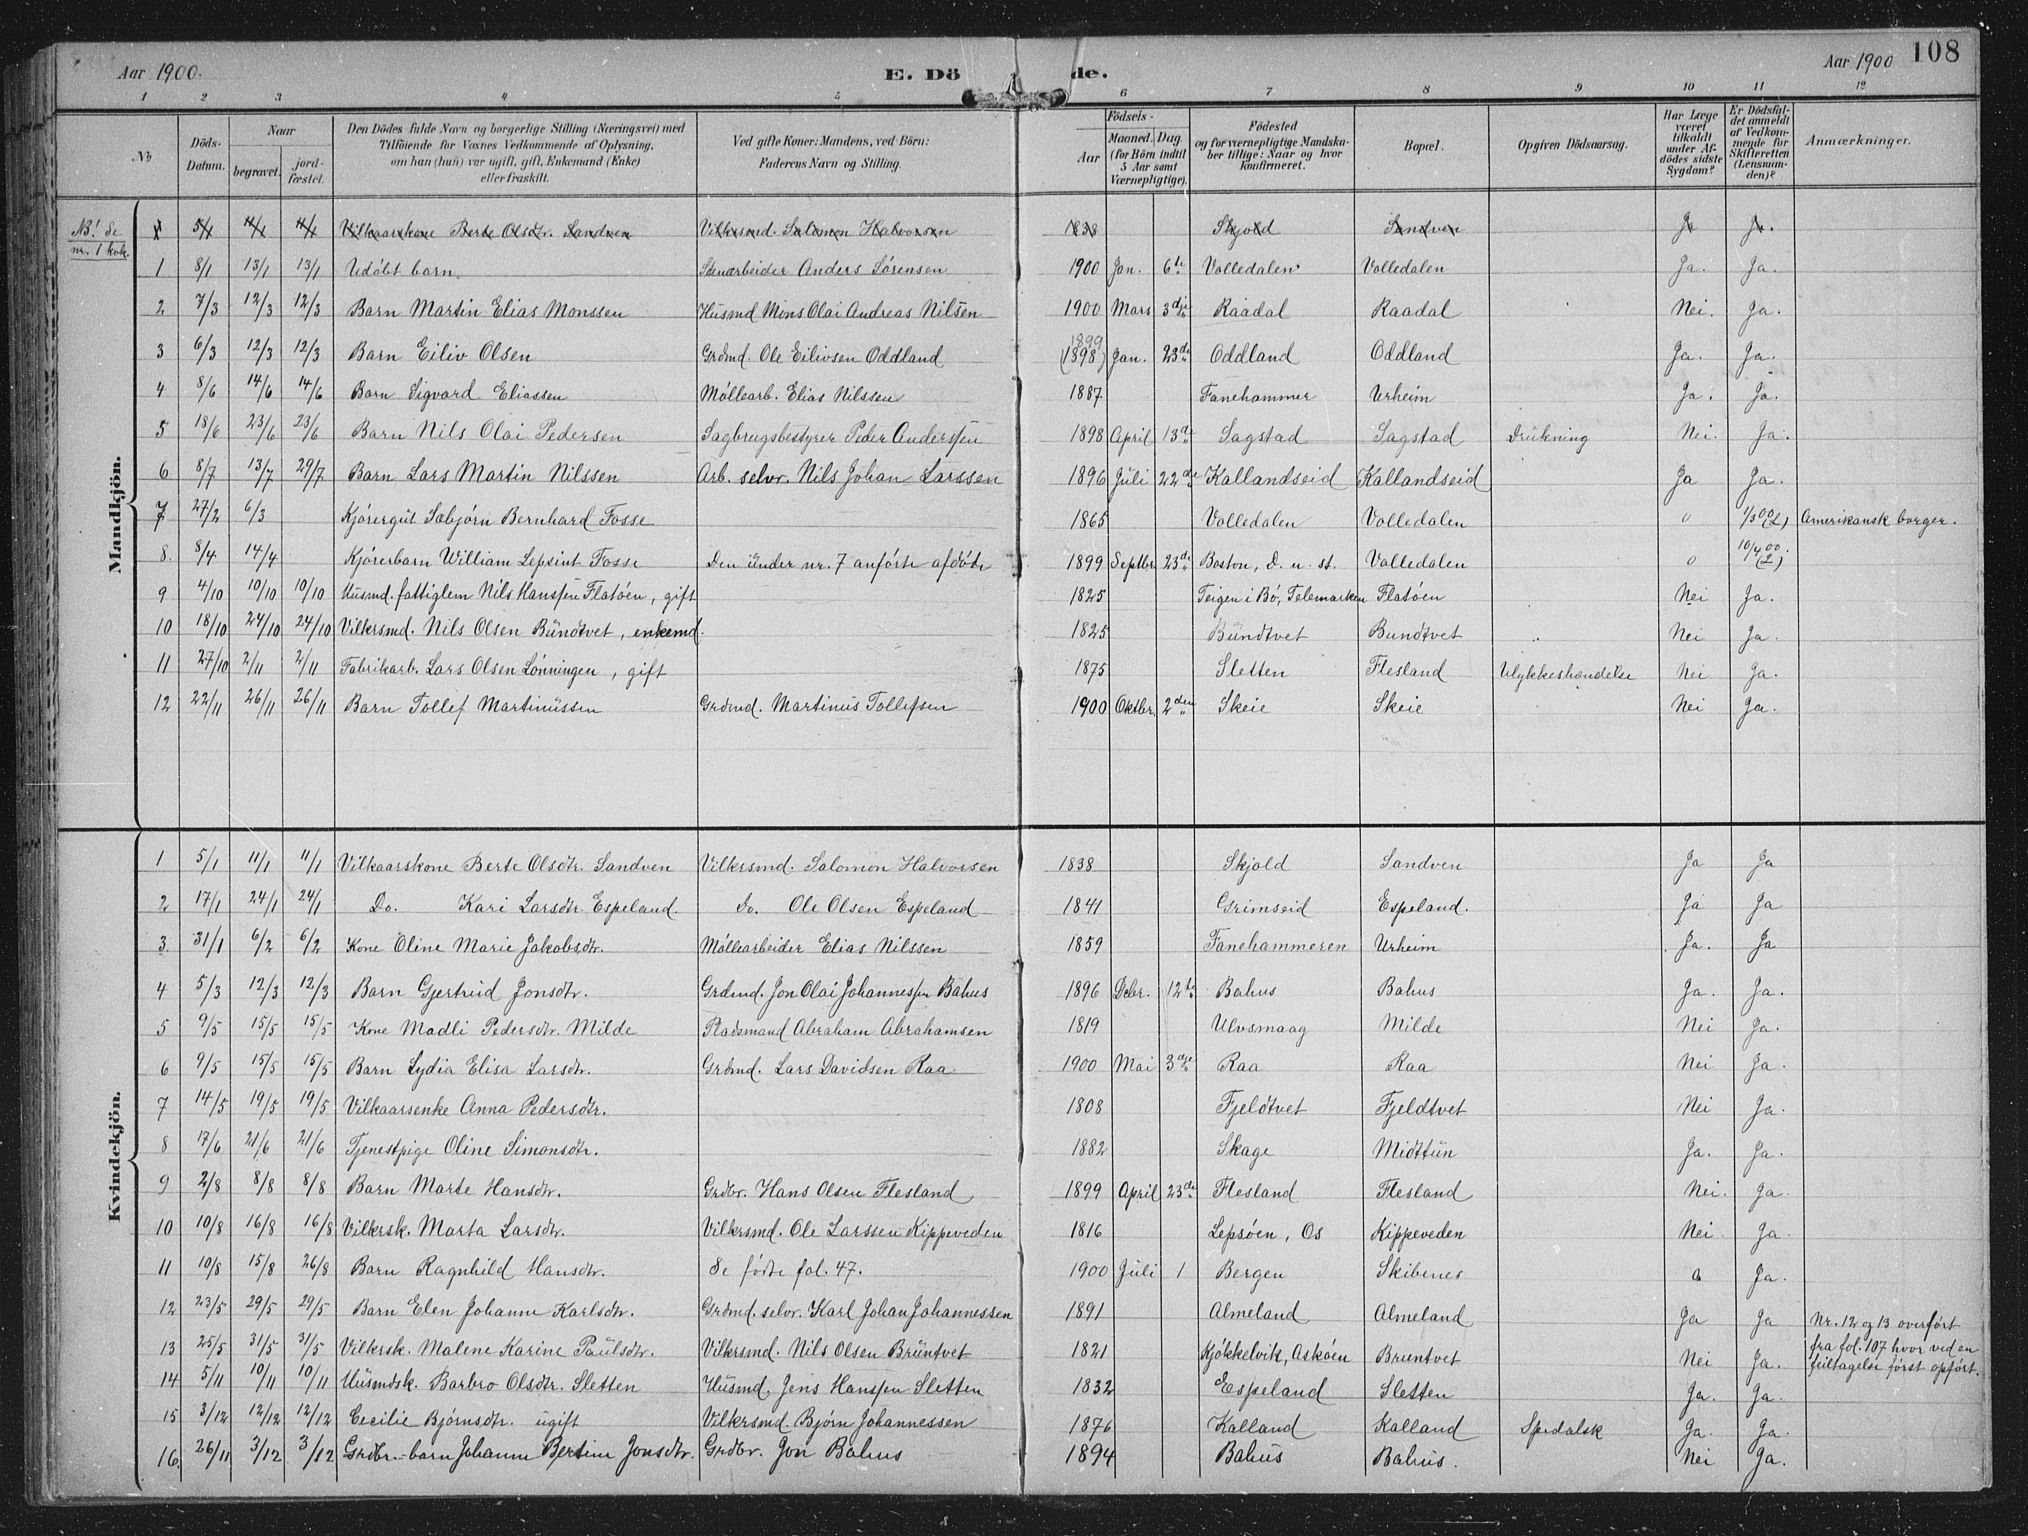 108
Aar 1900. E. Döde. Aar 1900
1 2 3 4 5 6 7 8 9 10 11 12
No
Döds-Datum.
Naar
begravet. jord-fæstet.
Den Dödes fulde Navn og borgerlige Stilling (Næringsvei) med
Tilföiende for Voxnes Vedkommende af Oplysning,
om han (hun) var ugift, gift, Enkemand (Enke)
eller fraskilt.
Ved gifte Koner: Mandens, ved Börn:
Faderens Navn og Stilling.
Födsels-
Aar Maaned. Dag.
(for Börn indtil
5 Aar samt
Værnepligtige).
Födested
og for værnepligtige Mandska-
ber tillige: Naar og hvor
konfirmeret.
Bopæl.
Opgiven Dödsaarsag.
Har Læge
været
tilkaldt
under Af-
dödes sidste
Sygdom?
Er Dödsfal-
det anmeldt
af Vedkom-
mende for
Skifteretten
(Lensman-
den)?
Anmærkninger.
Mandkjön.
NB! Se
nr. 1 kvk.
1 5/1 11/1 11/1 Vilkaarskone Berte Olsdtr. Sandven Vilkrsmd. Salomon Halvorsen 1838 Skjold Sandven Ja Ja.
1 8/1 13/1 13/1 Udøbt barn. Stenarbeider Anders Sørensen 1900 Jan. 6te Volledalen Volledalen Ja. Ja.
2 7/3 12/3 12/3 Barn Martin Elias Monssen Husmd Mons Olai Andreas Nilsen 1900 Mars 3dje Raadal Raadal Nei. Ja.
3 6/3 12/3 12/3 Barn Eiliv Olsen Grdmd. Ole Eilivsen Oddland 1899 (1898) Jan. 23de Oddland Oddland Ja. Ja.
4 8/6 14/6 14/6 Barn Sigvard Eliassen Møllearb. Elias Nilssen 1887 Fanehammer Urheim Ja. Ja.
5 18/6 23/6 23/6 Barn Nils Olai Pedersen Sagbrugsbestyrer Peder Anderssen 1898 April 13de Sagstad Sagstad Drukning Nei. Ja.
6 8/7 13/7 29/7 Barn Lars Martin Nilssen Arb. selvr. Nils Johan Larssen 1896 Juli 22de Kallandseid Kallandseid Ja Ja.
7 27/2 6/3 Kjøregut Sæbjørn Bernhard Fosse 1865 Volledalen Volledalen 0 1/3 00 (L) Amerikansk borger.
8. 8/4 14/4 Kjørerbarn William Lepsint Fosse Den under nr. 7 anførte afdøde 1899 Septbr. 23de Boston, D. u. st. Volledalen 0 10/4 00. (L)
9 4/10 10/10 10/10 Husmd. fattiglem Nils Hanssen Flatøen, gift 1825 Teigen i Bø, Telemarken Flatøen Nei Ja.
10 18/10 24/10 24/10 Vilkrsmd. Nils Olsen Bundtvet, enkemd. 1825 Bundtvet Bundtvet Nei Ja.
11 27/10 2/11 2/11 Fabrikarb. Lars Olsen Lønningen, gift 1875 Sletten Flesland Ulykkeshændelse Nei Ja.
12 22/11 26/11 26/11 Barn Tollef Martinussen Grdmd. Martinus Tollefsen 1900 Oktbr. 2den Skeie Skeie Nei Ja.
Kvindekjön.
1 5/1 11/1 11/1 Vilkaarskone Berte Olsdtr. Sandven Vilkrsmd. Salomon Halvorsen 1838 Skjold Sandven Ja Ja
2 17/1 24/1 24/1 Do. Kari Larsdtr. Espeland. Do. Ole Olsen Espeland 1841 Grimseid Espeland. Ja Ja
3. 31/1 6/2 6/2 Kone Oline Marie Jakobsdtr. Møllearbeider Elias Nilssen 1859 Fanehammeren Urheim Ja. Ja
4 5/3 12/3 12/3 Barn Gjertrud Jonsdtr. Grdmd. Jon Olai Johannessen Bahus 1896 Decbr. 12te Bahus Bahus Ja. Ja.
5 9/5 15/5 15/5 Kone Madli Pedersdtr. Milde Pladsmand Abraham Abrahamsen 1819 Ulvsmaag Milde Nei Ja.
6 9/5 15/5 15/5 Barn Lydia Elisa Larsdtr. Grdmd. Lars Davidsen Raa 1900 Mai 3dje Raa Raa Nei Ja.
7 14/5 19/5 19/5 Vilkaarsenke Anna Pedersdtr. 1808 Fjeldtvet Fjeldtvet Nei Ja.
8 17/6 21/6 21/6 Tjenestpige Oline Simonsdtr. 1882 Skage Midttun Ja. Ja.
9 2/8 8/8 8/8 Barn Marte Hansdtr. Grdbr. Hans Olsen Flesland 1899 April 23de Flesland Flesland Nei. Ja.
10 10/8 16/8 16/8 Vilkrsk. Marta Larsdtr. Vilkrsmd. Ole Larssen Kippeveden 1816 Lepsøen, Os Kippeveden Nei. Ja.
11 10/8 15/8 26/8 Barn Ragnhild Hansdtr. Se fødte fol. 47. 1900 Juli 1 Bergen Skibenes Ja.
12 23/5 29/5 29/5 Barn Elen Johanne Karlsdtr. Grdmd. selvr. Karl Johan Johannessen 1891 Almeland Almeland Ja Ja Nr. 12 og 13 overført
13 25/5 31/5 31/5 Vilkrsk. Malene Karine Paulsdtr. Vilkrsmd. Nils Olsen Bruntvet 1821 Kjøkkelvik, Askøen Bruntvet Nei Ja. fra fol. 107 hvor ved en
feiltagelse først opført.
14 5/11 10/11 10/11 Husmdsk. Barbro Olsdtr. Sletten Husmd. Jens Hanssen Sletten 1832 Espeland Sletten Ja. Ja.
15 3/12 12/12 12/12 Cecilie Bjørnsdtr. ugift Vilkrsmd. Bjørn Johannessen 1876 Kalland Kalland Spedalsk Ja. Ja.
16. 26/11 3/12 3/12 Grdbr.-barn Johanne Bertine Jonsdtr. Grdbr. Jon Bahus 1894 Bahus Bahus. Nei Ja.